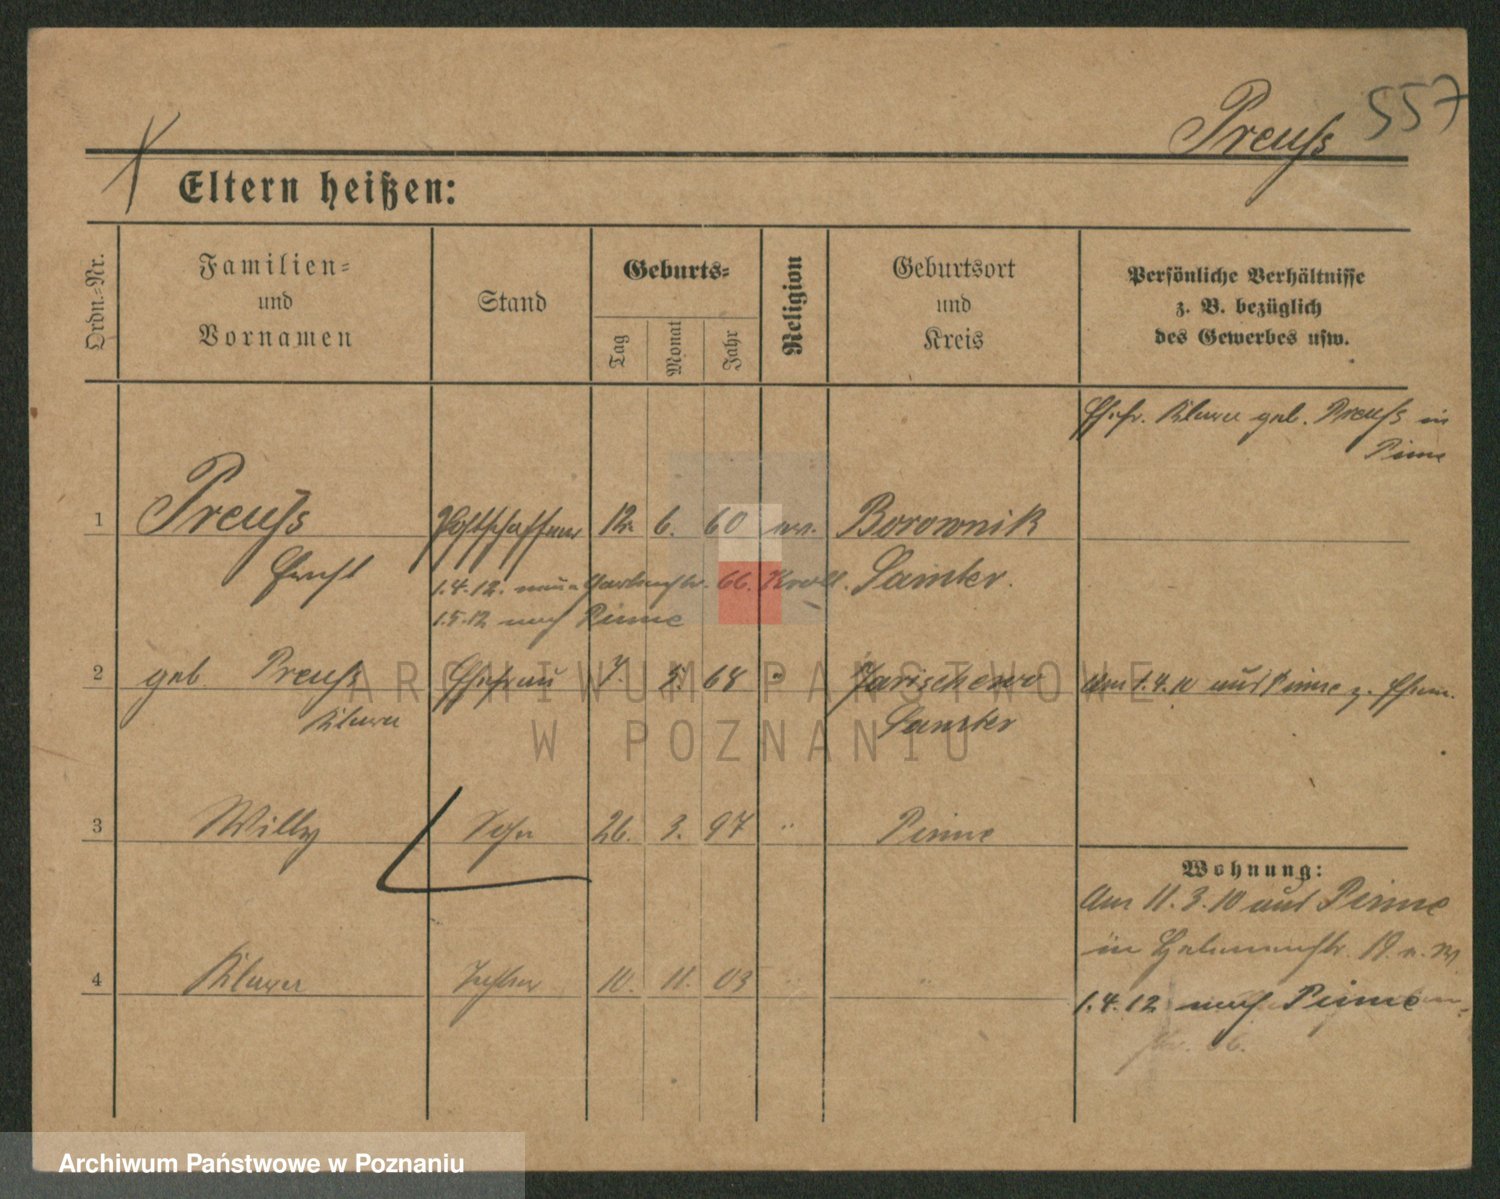 Preuß 557
Eltern heißen:
Ordn.-Nr.
Familien-
und
Vornamen
Stand
Geburts-
Tag
Monat
Jahr
Religion
Geburtsort
und
Kreis
Persönliche Verhältnisse
z. B. bezüglich
des Gewerbes usw.
Ehefr. geb. Preuß in
Pinne
1 Preuß Postschaffner 12. 6. 60 ev. Borownik
Ernst
1.4.12. 66. Samter.
1.5.12 nach Pinne
2 geb. Preuß Ehefrau 7. 5. 68 " Jarischewo Am 1.4. aus Pinne z. Ehem.
Samter
3 Willy Sohn 26. 3. 97 " Pinne
Wohnung:
Am 11.3.10 aus Pinne
in
4 Tochter 10. 11. 03 " "
1.4.12 nach Pinne
ARCHIWUM PAŃSTWOWE
W POZNANIU
Archiwum Państwowe w Poznaniu